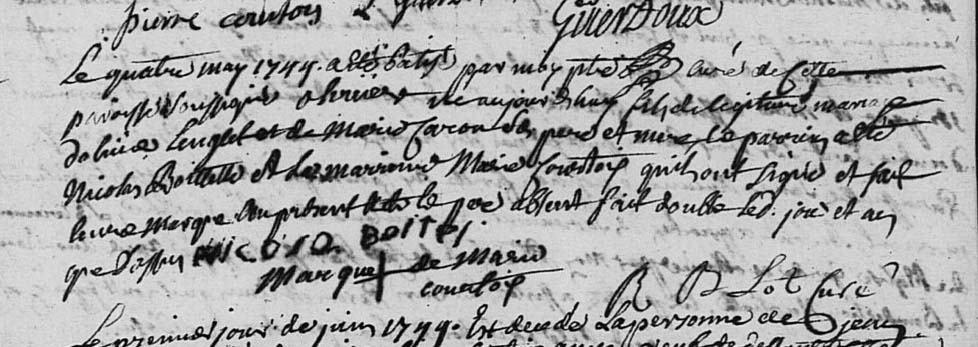 pierre courtois
Le quatre may 1744 a esté batisé par moy pbre curé de cette
paroisse soussigné olivier né aujourd'huy fils de legitime mariage
dolivie Lenglet et de Marie Caron ses pere et mere, le parrin a esté
Nicolas Boittelle et La marinne Marie Courtois quihont signé et fait
leure marque En présent le pere absent fait double led. jour et an
que dessus NICOLA BOITEL
Marque de Marie
courtois
R B Lot Curé
Le premier jour de juin 1744. Est decede La personne de jean